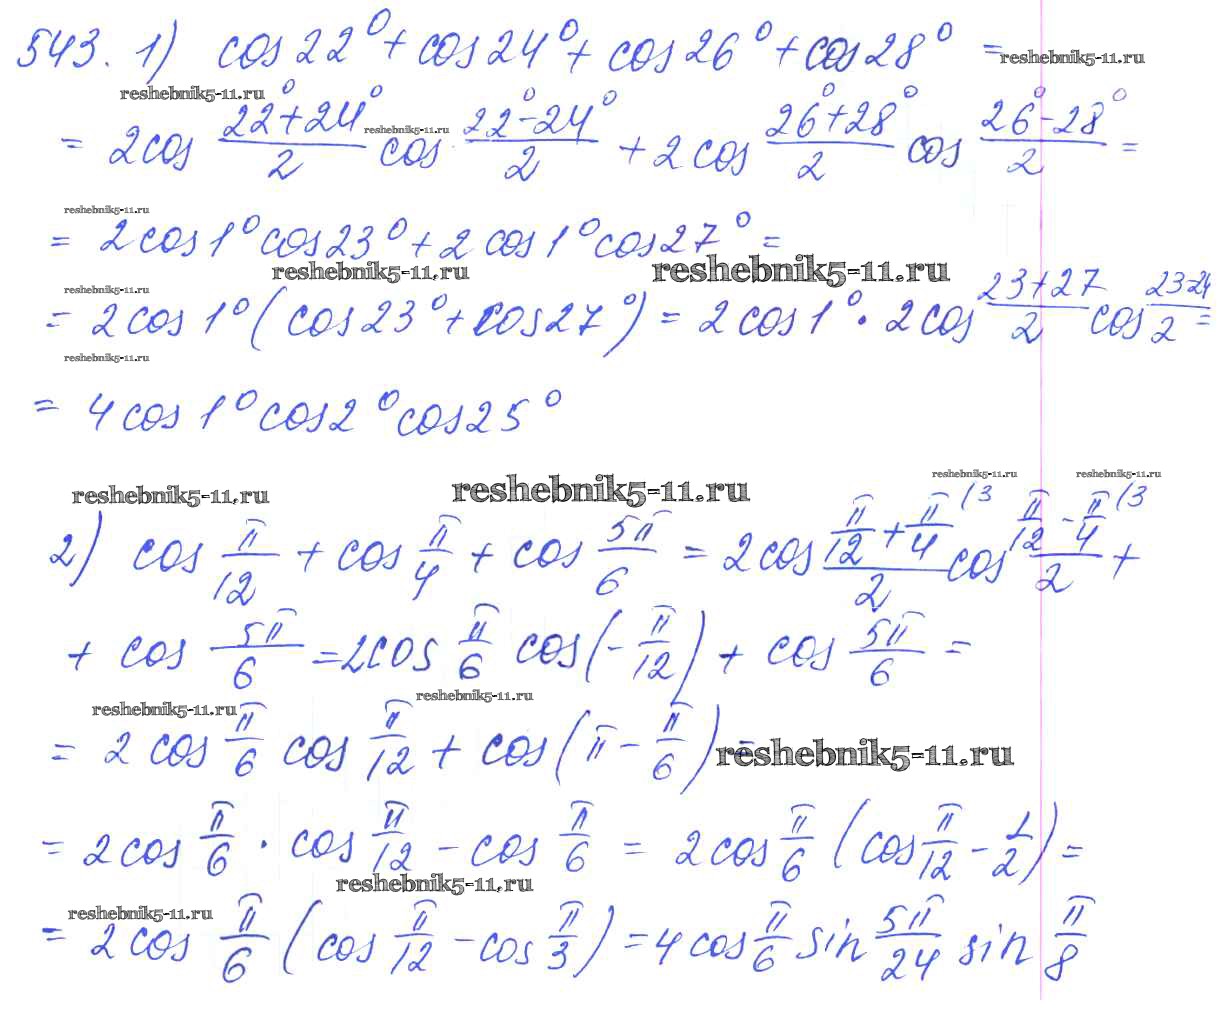 543. 1) cos 22° + cos 24° + cos 26° + cos 28° =
reshebnik5-11.ru
reshebnik5-11.ru
= 2 cos (22° + 24°)/2 cos (22° - 24°)/2 + 2 cos (26° + 28°)/2 cos (26° - 28°)/2 =
reshebnik5-11.ru
reshebnik5-11.ru
= 2 cos 1° cos 23° + 2 cos 1° cos 27° =
reshebnik5-11.ru
reshebnik5-11.ru
reshebnik5-11.ru
= 2 cos 1° (cos 23° + cos 27°) = 2 cos 1° · 2 cos (23 + 27)/2 cos (23 - 27)/2 =
reshebnik5-11.ru
= 4 cos 1° cos 2° cos 25°
reshebnik5-11.ru
reshebnik5-11.ru
reshebnik5-11.ru
reshebnik5-11.ru
2) cos π/12 + cos π/4 + cos 5π/6 = 2 cos (π/12 + π/4 (3)/2 cos (π/12 - π/4 (3)/2 +
+ cos 5π/6 = 2 cos π/6 cos (- π/12) + cos 5π/6 =
reshebnik5-11.ru
reshebnik5-11.ru
= 2 cos π/6 cos π/12 + cos (π - π/6) =
reshebnik5-11.ru
= 2 cos π/6 · cos π/12 - cos π/6 = 2 cos π/6 (cos π/12 - 1/2) =
reshebnik5-11.ru
reshebnik5-11.ru
= 2 cos π/6 (cos π/12 - cos π/3) = 4 cos π/6 sin 5π/24 sin π/8